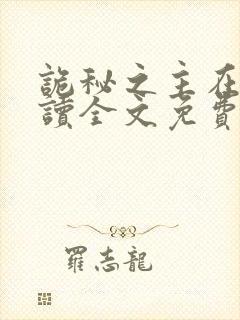 詭秘之主在
讀全文免費
羅志龍